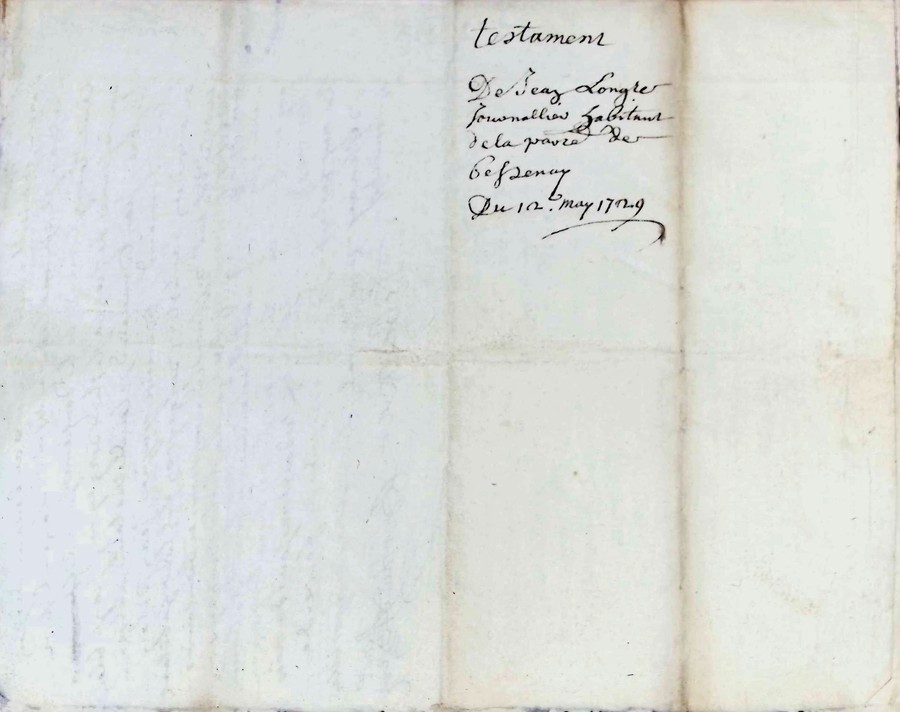 testament
De Jean Longre
Journallier habitant
de la paroe de
bessenay
Du 12e. may 1729